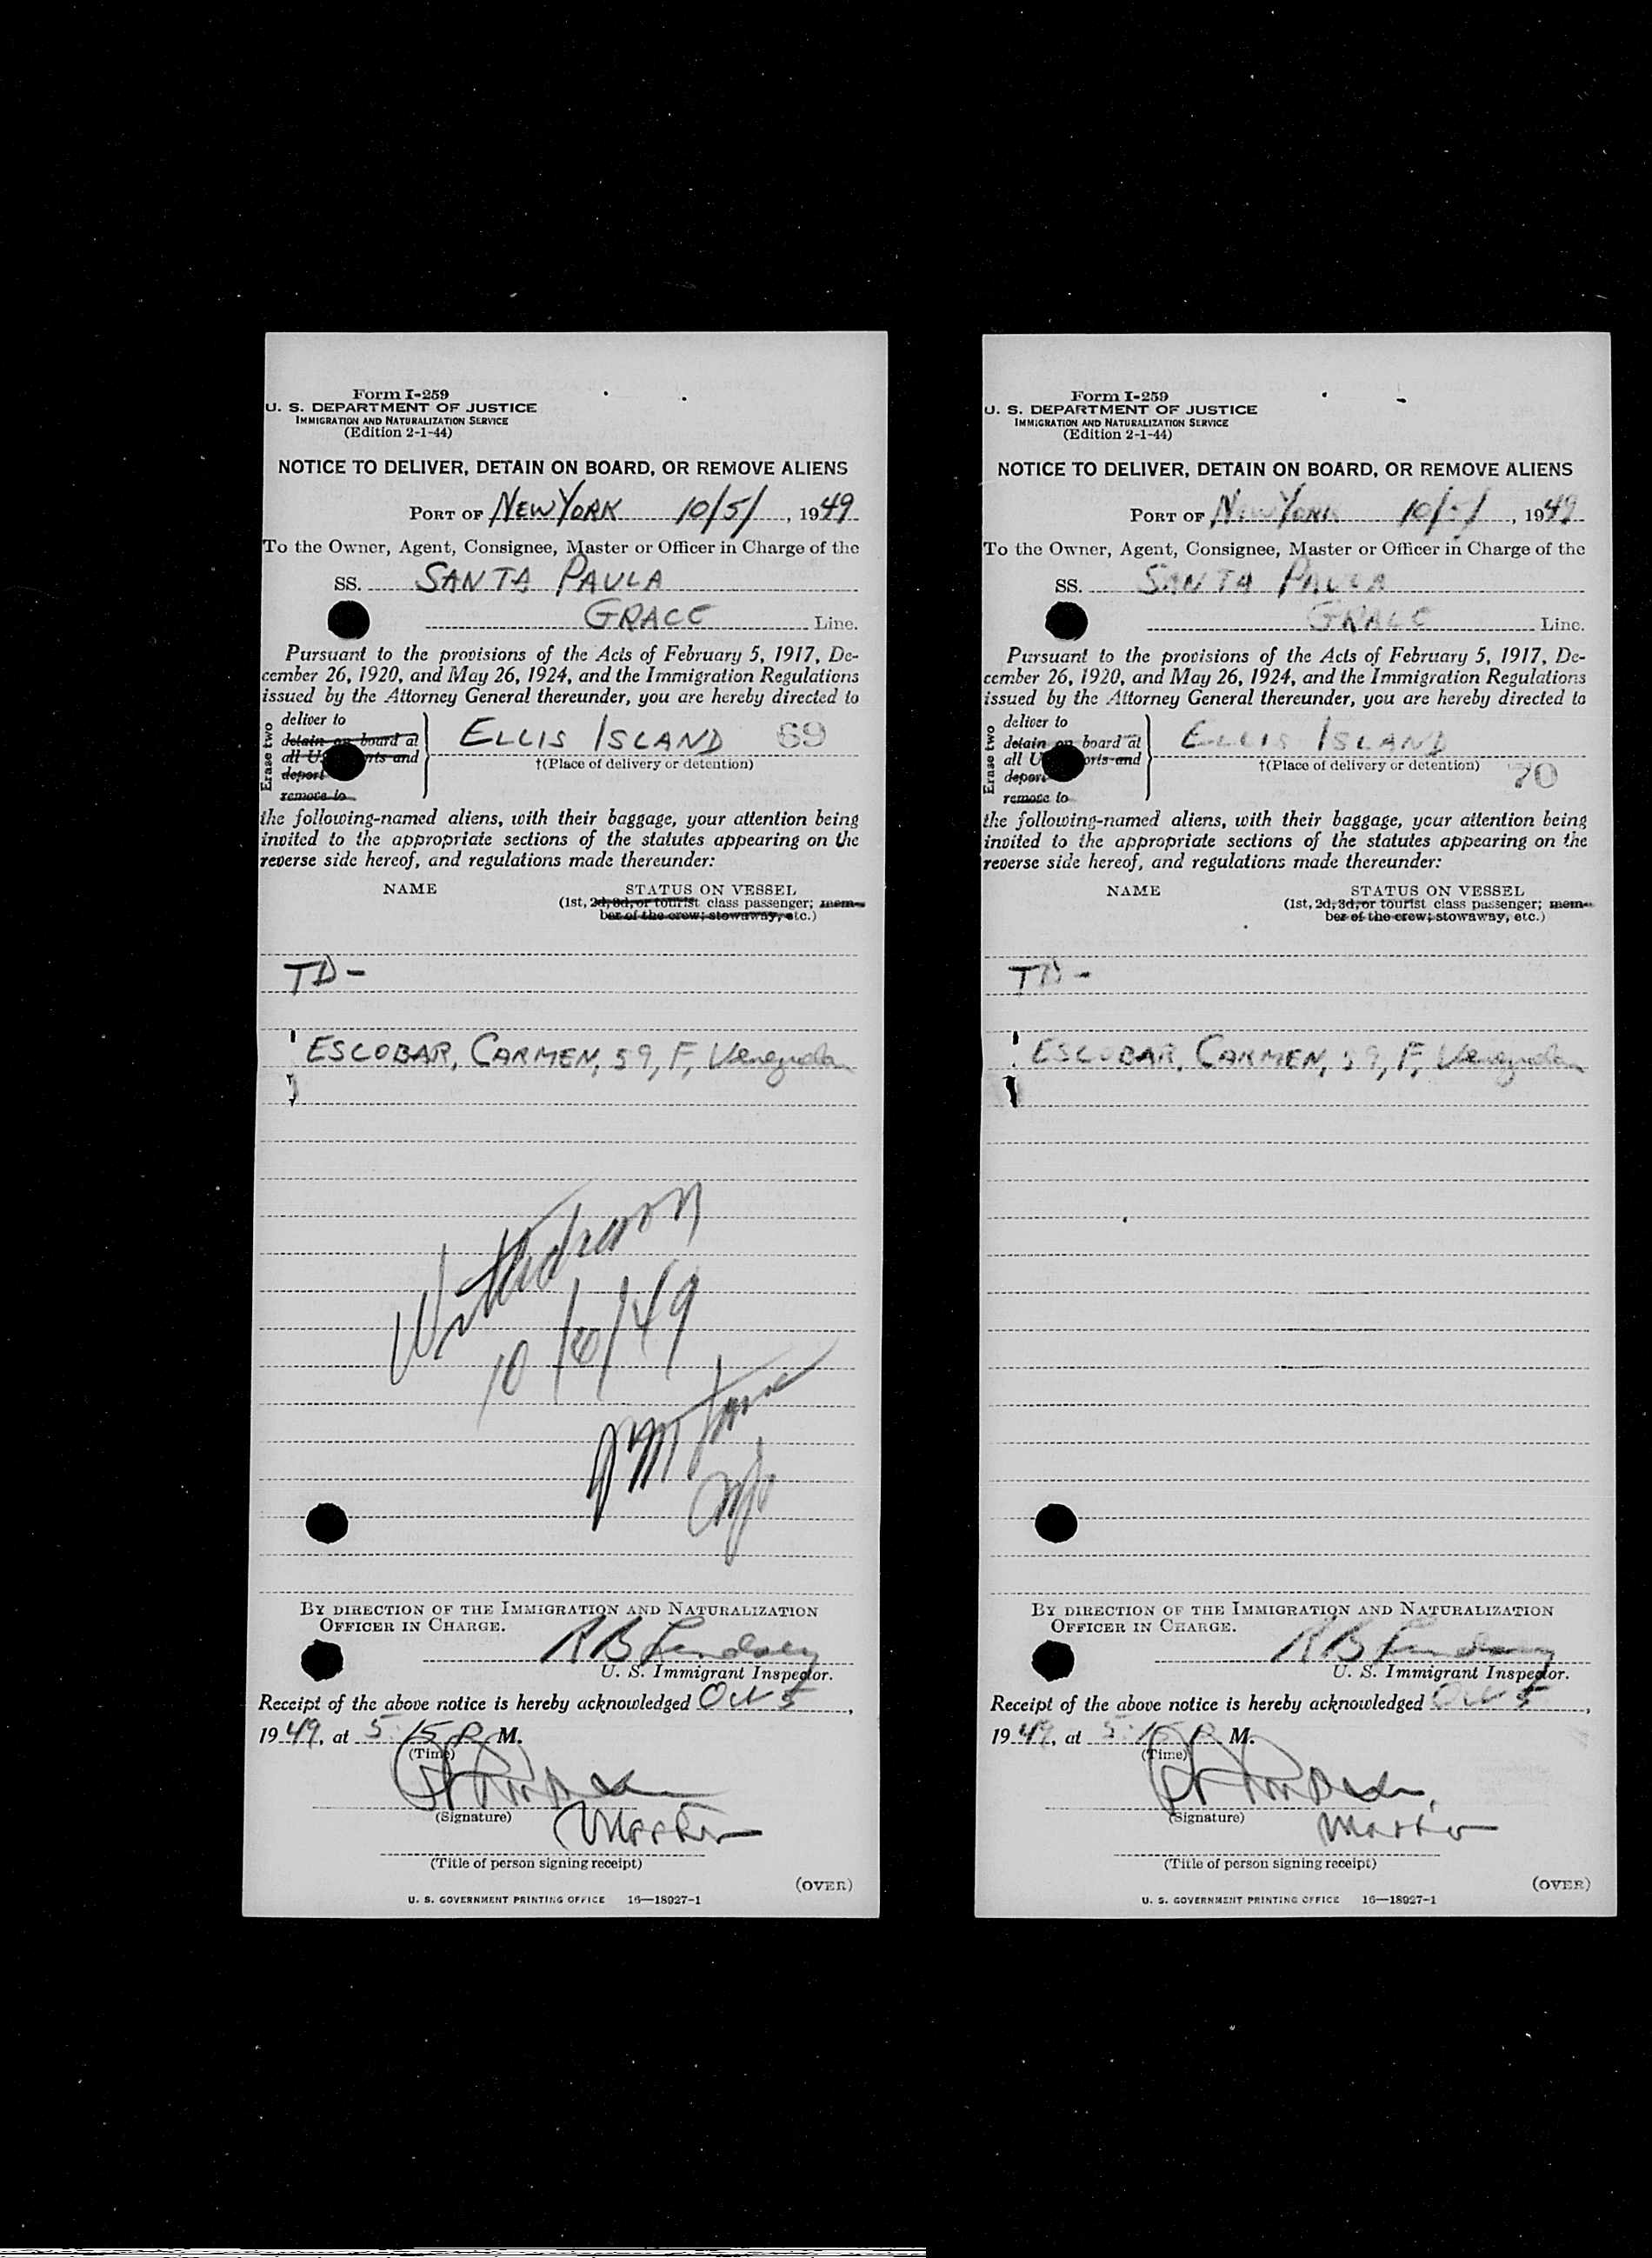 Form I-259
U. S. DEPARTMENT OF JUSTICE
IMMIGRATION AND NATURALIZATION SERVICE
(Edition 2-1-44)
NOTICE TO DELIVER, DETAIN ON BOARD, OR REMOVE ALIENS
PORT OF NEW YORK 10/5/, 1949
To the Owner, Agent, Consignee, Master or Officer in Charge of the
SS. SANTA PAULA
GRACE Line.
Pursuant to the provisions of the Acts of February 5, 1917, De-
cember 26, 1920, and May 26, 1924, and the Immigration Regulations
issued by the Attorney General thereunder, you are hereby directed to
Erase two
deliver to
detain on board at
all U. rts and
deport
remove to
ELLIS ISLAND 69
†(Place of delivery or detention)
the following-named aliens, with their baggage, your attention being
invited to the appropriate sections of the statutes appearing on the
reverse side hereof, and regulations made thereunder:
NAME STATUS ON VESSEL
(1st, 2d, 3d, or tourist class passenger; mem-
ber of the crew; stowaway, etc.)
TD -
ESCOBAR, CARMEN, 59, F, Venezuelan
Withdrawn
10/6/49
BY DIRECTION OF THE IMMIGRATION AND NATURALIZATION
OFFICER IN CHARGE.
R B Lindsey
U. S. Immigrant Inspector.
Receipt of the above notice is hereby acknowledged Oct 5,
1949, at 5:15 P. M.
(Time)
(Signature)
Master
(Title of person signing receipt)
(OVER)
U. S. GOVERNMENT PRINTING OFFICE 16—18927-1
Form I-259
U. S. DEPARTMENT OF JUSTICE
IMMIGRATION AND NATURALIZATION SERVICE
(Edition 2-1-44)
NOTICE TO DELIVER, DETAIN ON BOARD, OR REMOVE ALIENS
PORT OF New York 10/5/, 1949
To the Owner, Agent, Consignee, Master or Officer in Charge of the
SS. SANTA PAULA
GRACE Line.
Pursuant to the provisions of the Acts of February 5, 1917, De-
cember 26, 1920, and May 26, 1924, and the Immigration Regulations
issued by the Attorney General thereunder, you are hereby directed to
Erase two
deliver to
detain on board at
all U orts and
deport
remove to
ELLIS ISLAND
†(Place of delivery or detention) 70
the following-named aliens, with their baggage, your attention being
invited to the appropriate sections of the statutes appearing on the
reverse side hereof, and regulations made thereunder:
NAME STATUS ON VESSEL
(1st, 2d, 3d, or tourist class passenger; mem-
ber of the crew; stowaway, etc.)
TD -
ESCOBAR, CARMEN, 59, F, Venezuelan
BY DIRECTION OF THE IMMIGRATION AND NATURALIZATION
OFFICER IN CHARGE.
R B Lindsey
U. S. Immigrant Inspector.
Receipt of the above notice is hereby acknowledged Oct 5,
1949, at 5:15 P. M.
(Time)
(Signature)
Master
(Title of person signing receipt)
(OVER)
U. S. GOVERNMENT PRINTING OFFICE 16—18927-1